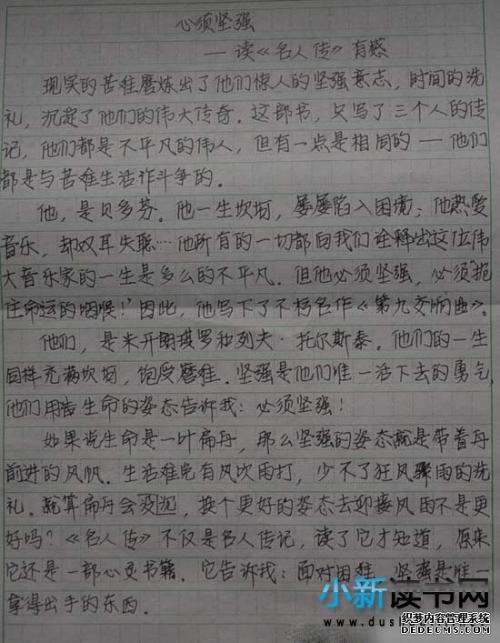 心须坚强
——读《名人传》有感
现实的苦难磨炼出了他们惊人的坚强意志，时间的洗
礼，沉淀了他们的伟大传奇。这部书，只写了三个人的传
记，他们都是不平凡的伟人，但有一点是相同的——他们
都是与苦难生活作斗争的。
他，是贝多芬。他一生坎坷，屡屡陷入困境；他热爱
音乐，却双耳失聪…他所有的一切都向我们诠释出这位伟
大音乐家的一生是多么的不平凡。但他必须坚强，必须扼
住命运的咽喉！因此，他写下了不朽名作《第九交响曲》。
他们，是米开朗琪罗和列夫·托尔斯泰。他们的一生
同样充满坎坷，饱受磨难。坚强是他们唯一活下去的勇气，
他们用着生命的姿态告诉我：必须坚强！
如果说生命是一叶扁舟，那么坚强的姿态就是带着舟
前进的风帆。生活难免有风吹雨打，少不了狂风骤雨的洗
礼。就算扁舟会没沉，换个更好的姿态去迎接风雨不是更
好吗？《名人传》不仅是名人传记，读了它才知道，原来
它还是一部心灵书籍。它告诉我：面对困难，坚强是唯一
拿得出手的东西。
小新读书网
www.dus
织梦内容管理系统
DEDECMS.COM